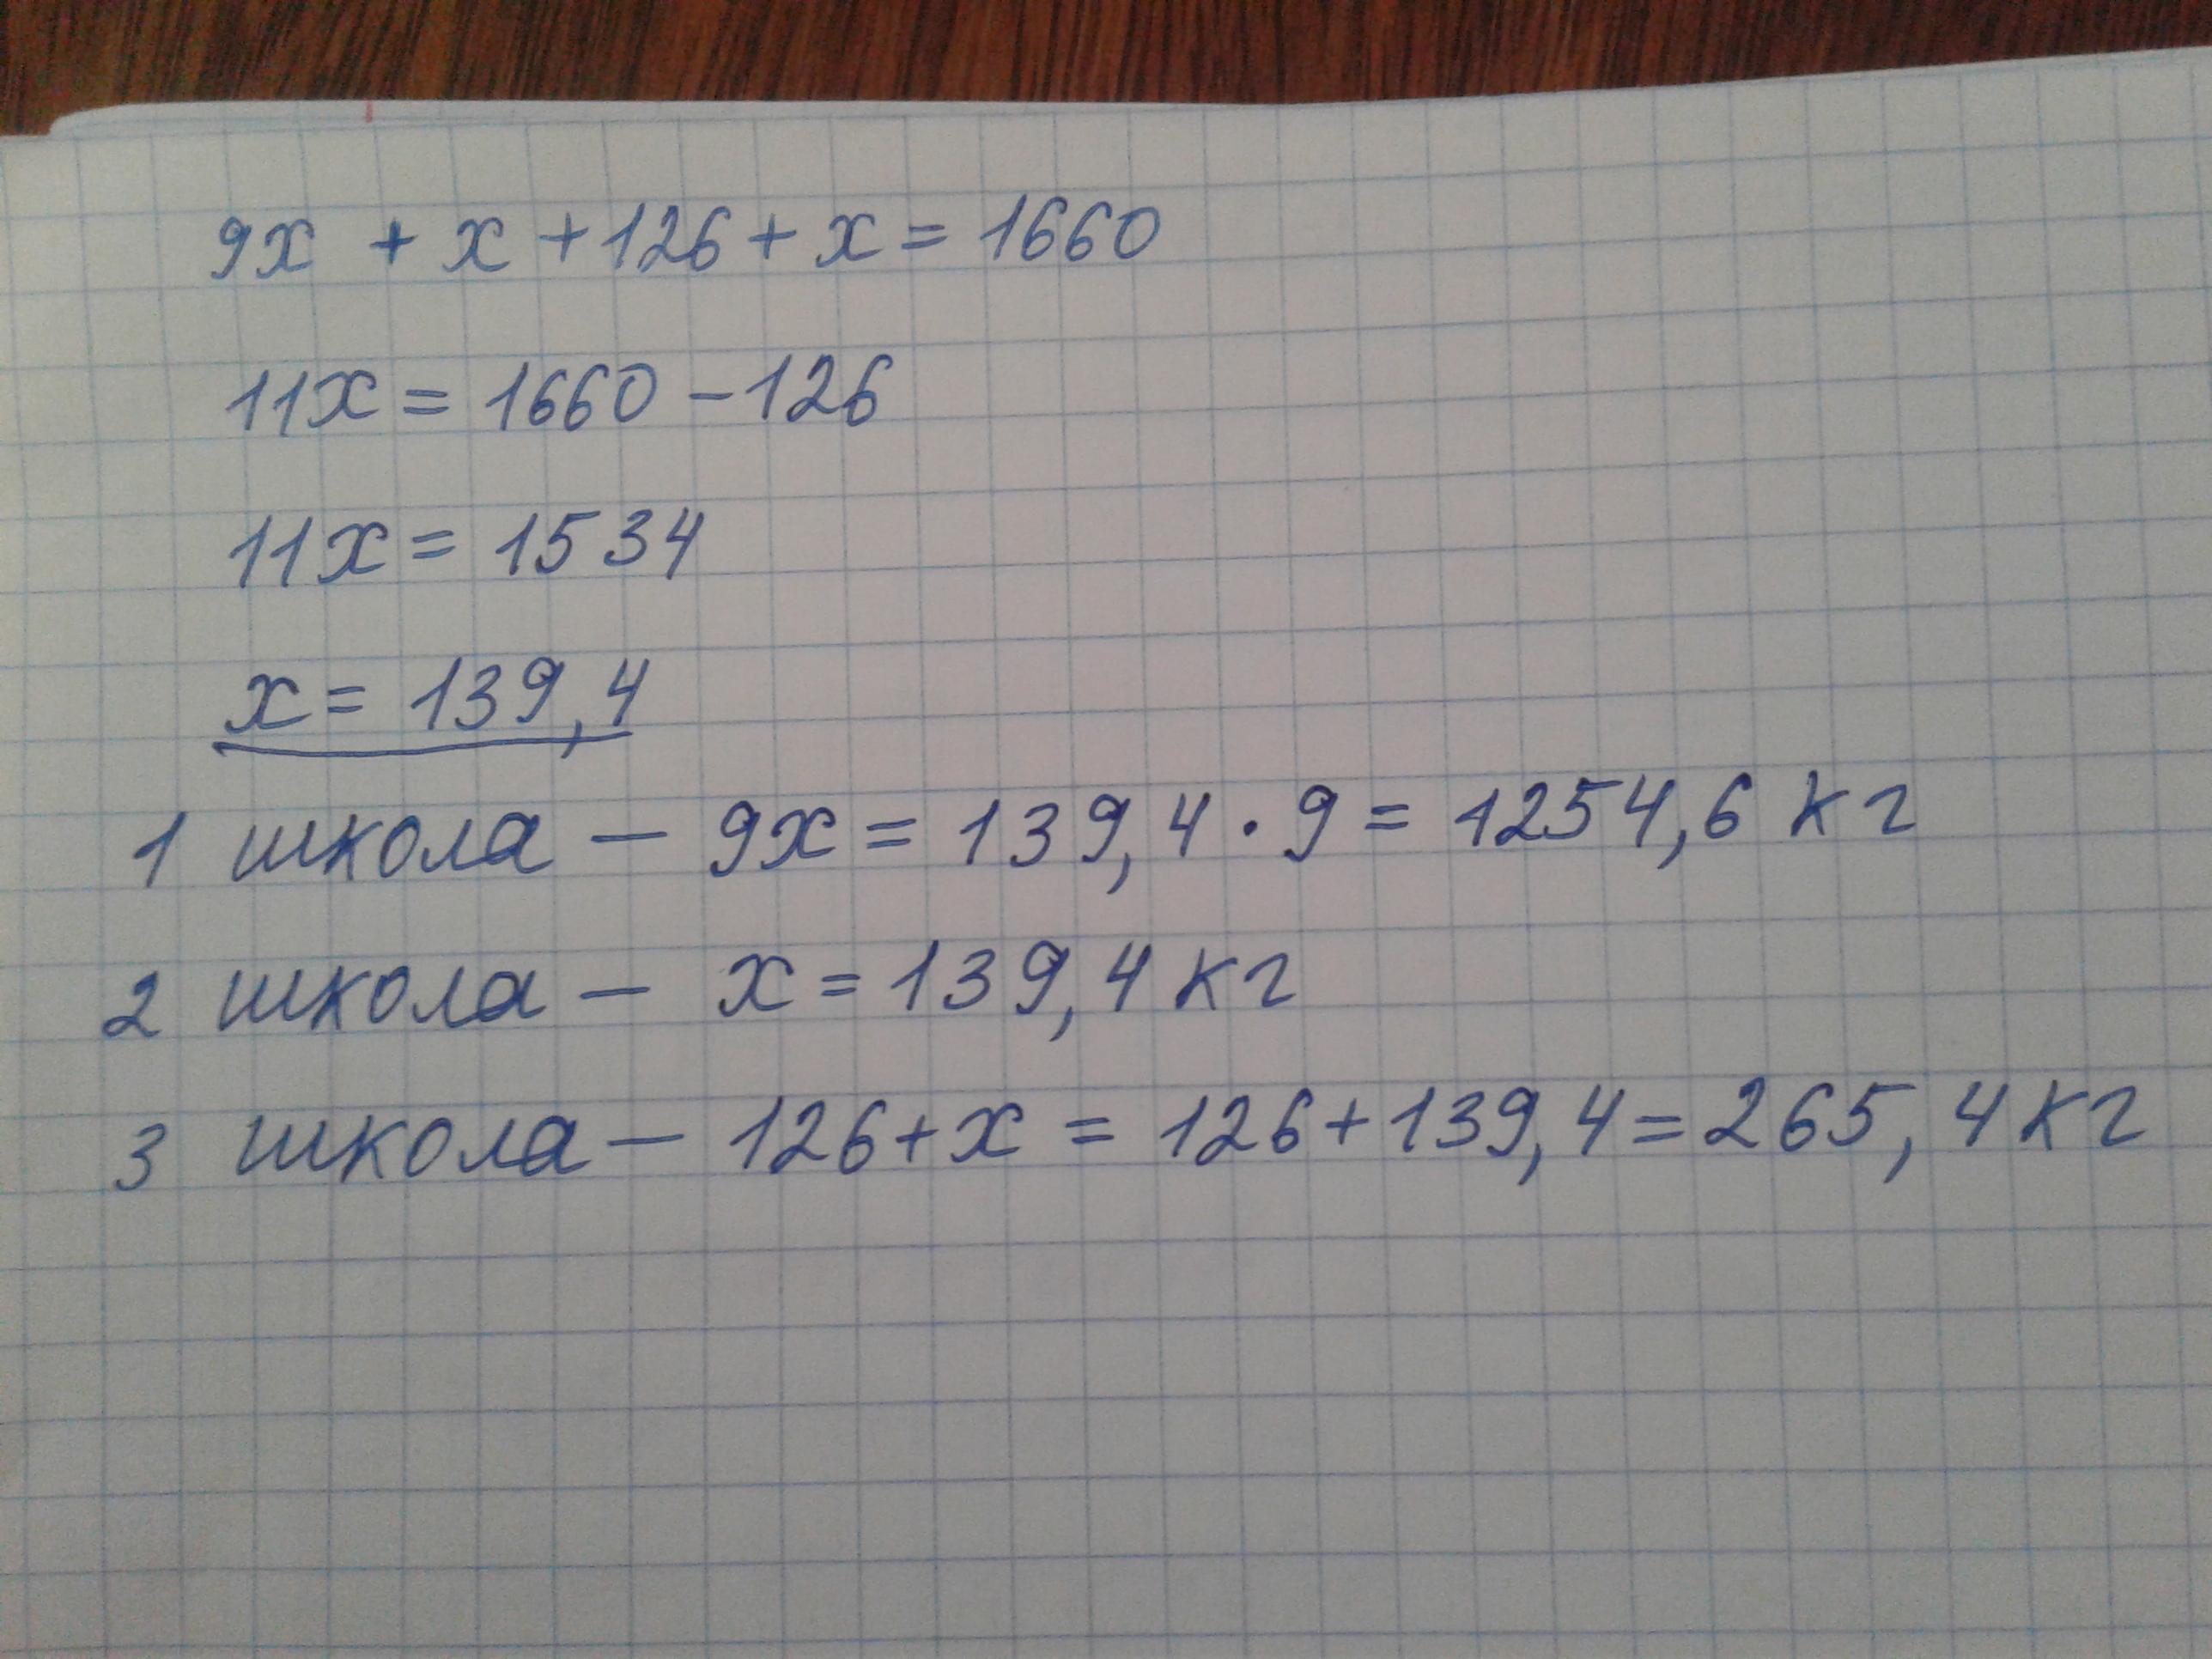 9x + x + 126 + x = 1660
11x = 1660 - 126
11x = 1534
x = 139,4
1 школа — 9x = 139,4 · 9 = 1254,6 кг
2 школа — x = 139,4 кг
3 школа — 126 + x = 126 + 139,4 = 265,4 кг